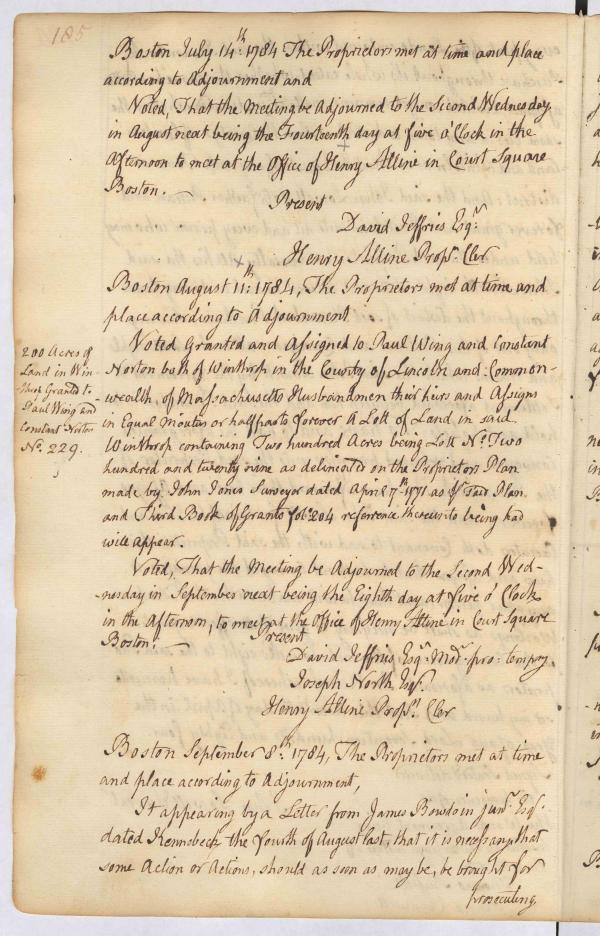 185
Boston July 14th. 1784 The Proprietors met at time and place
according to Adjournment and
Voted, That the Meeting be Adjourned to the Second Wednesday
in August next being the Fourteenth day at five o'Clock in the
Afternoon to meet at the Office of Henry Alline in Court Square
Boston. —
Present
David Jeffries Esqr.
Henry Alline Props. Cler
Boston August 11th: 1784, The Proprietors met at time and
place according to Adjournment
200 Acres of
Land in Win-
-throp Granted to
Paul Wing and
Constant Norton
No. 229.
Voted Granted and Assigned to Paul Wing and Constant
Norton both of Winthrop in the County of Lincoln and Common-
wealth, of Massachusetts Husbandmen their heirs and Assigns
in Equal Moieties or half parts forever A Lott of Land in said
Winthrop containing Two hundred Acres being Lott No. Two
hundred and twenty nine as delineated on the Proprietors Plan
made by John Jones Surveyor dated April 7th. 1771 as by said Plan
and Third Book of Grants fol: 204 reference thereunto being had
will appear.
Voted, That the Meeting be Adjourned to the Second Wed-
-nesday in September next being the Eighth day at Five o' Clock
in the Afternoon, to meet at the Office of Henry Alline in Court Square
Boston. —
Present
David Jeffries Esqr. Modr. pro: tempore
Joseph North Esqr.
Henry Alline Props. Cler
Boston September 8th. 1784, The Proprietors met at time
and place according to Adjournment,
It appearing by a Letter from James Bowdoin junr. Esqr.
dated Kennebeck the fourth of August last, that it is necessary, that
some Action or Actions, should as soon as may be, be brought for
prosecuting